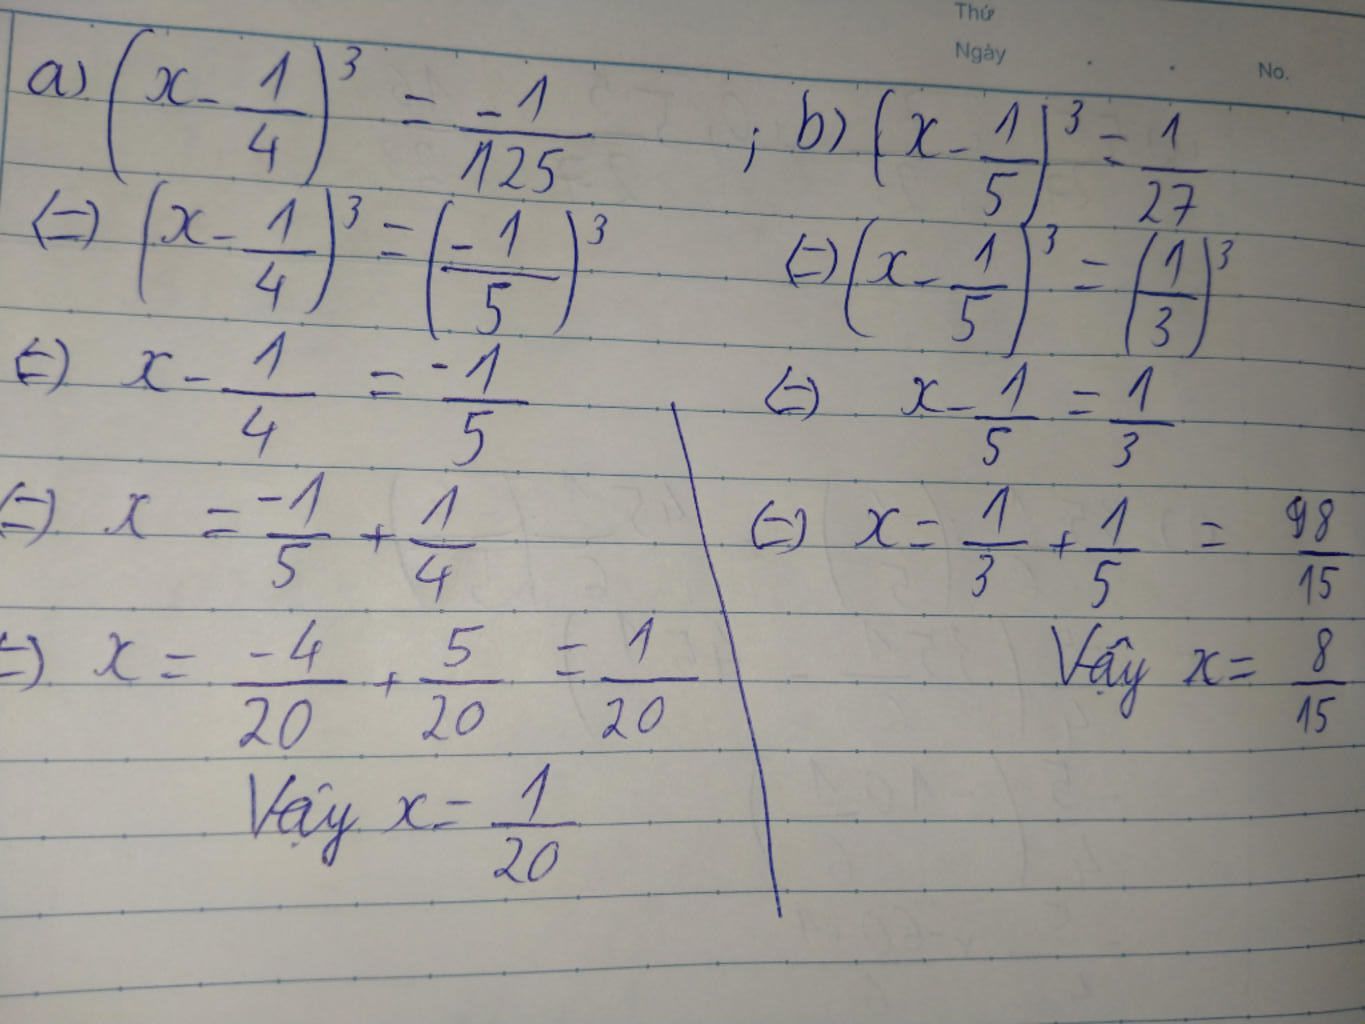 Thứ
Ngày
No.
a) (x - 1/4)³ = -1/125 ;
(=) (x - 1/4)³ = (-1/5)³
(=) x - 1/4 = -1/5
(=) x = -1/5 + 1/4
(=) x = -4/20 + 5/20 = 1/20
Vậy x = 1/20
b) (x - 1/5)³ = 1/27
(=) (x - 1/5)³ = (1/3)³
(=) x - 1/5 = 1/3
(=) x = 1/3 + 1/5 = 8/15
Vậy x = 8/15